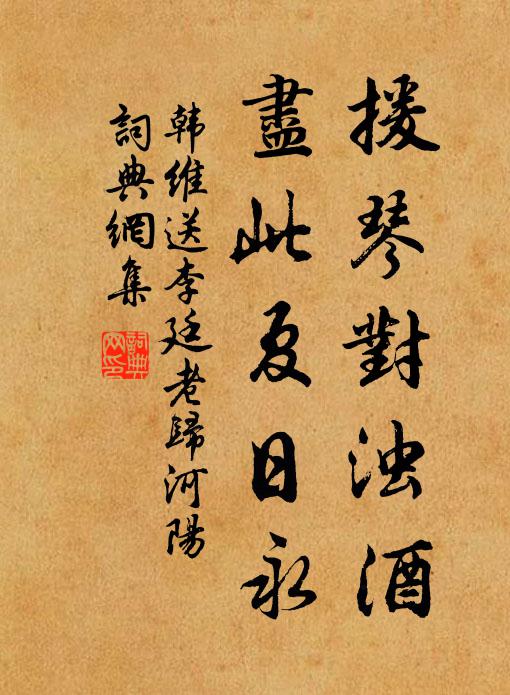 援琴對浊酒
盡此夏日永
韩維送李廷老歸河陽
詞典網集
詞典
网印